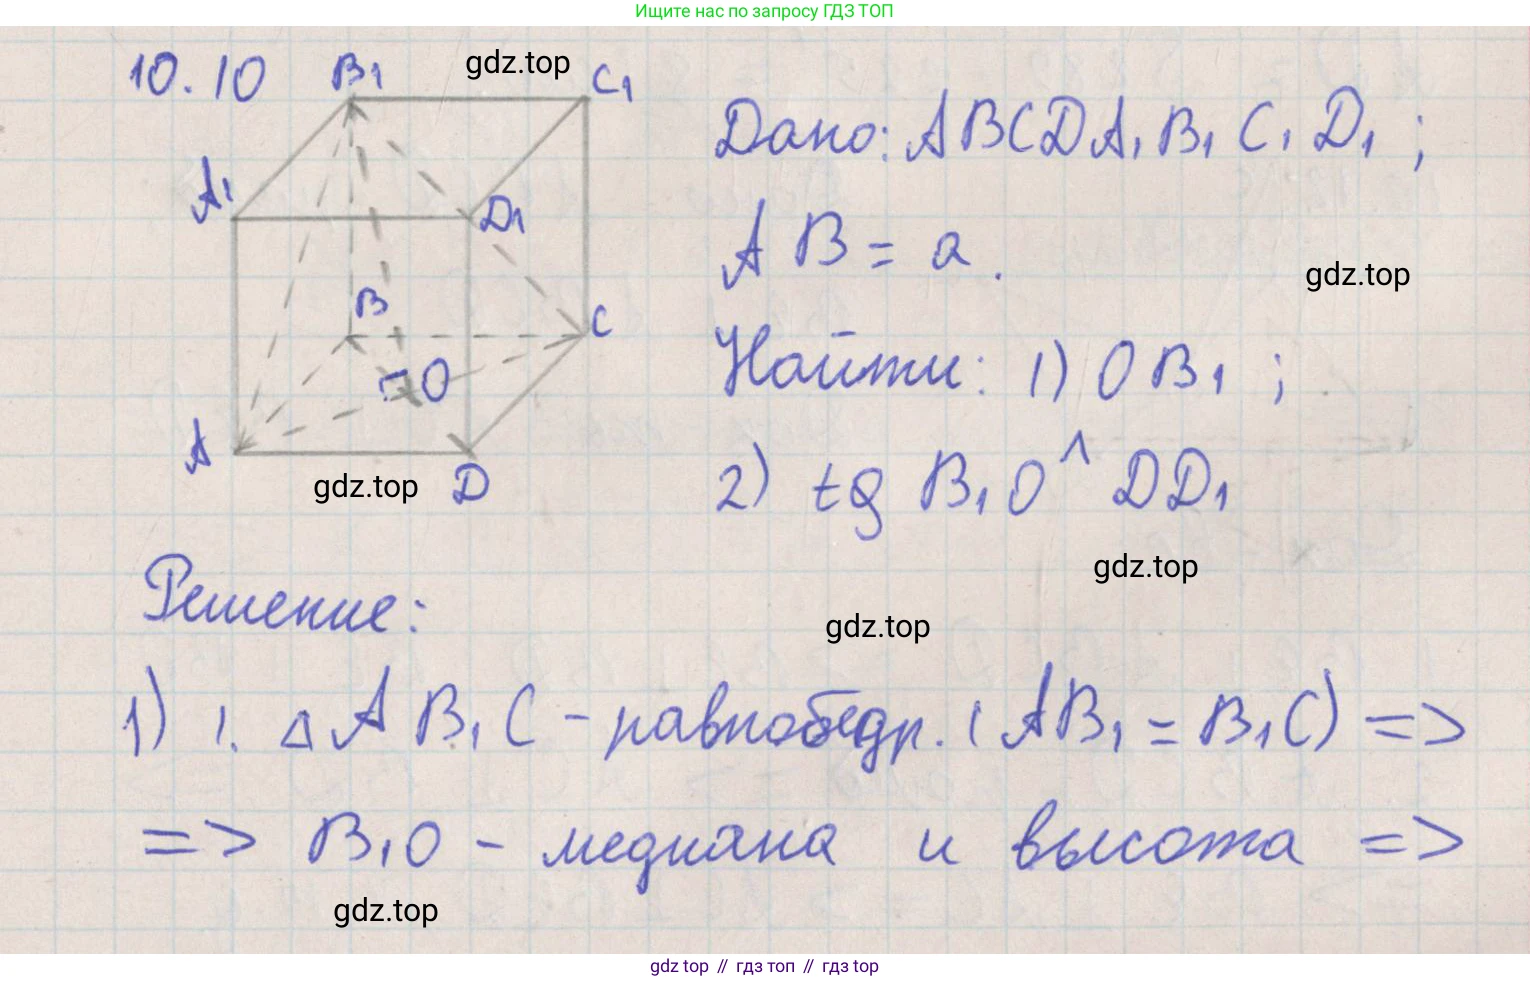 Ищите нас по запросу ГДЗ ТОП
10.10
B₁
gdz.top
C₁
Дано: ABCDA₁B₁C₁D₁;
A₁
D₁
AB = a.
gdz.top
B
C
O
Найти: 1) OB₁;
A
D
gdz.top
2) tg B₁O^DD₁
gdz.top
Решение:
gdz.top
1) 1. △AB₁C - равнобедр. (AB₁ = B₁C) =>
=> B₁O - медиана и высота =>
gdz.top
gdz top // гдз топ // gdz top